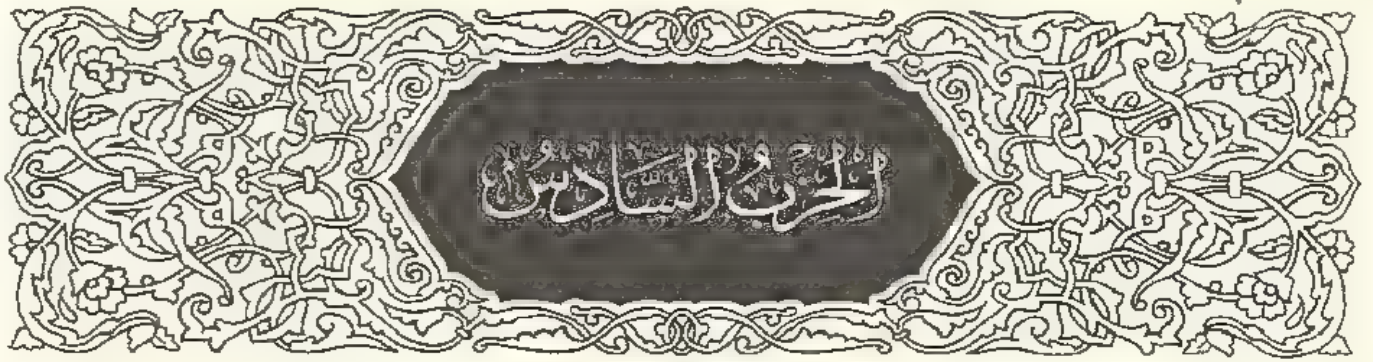 الحِزبُ السَّادِسُ